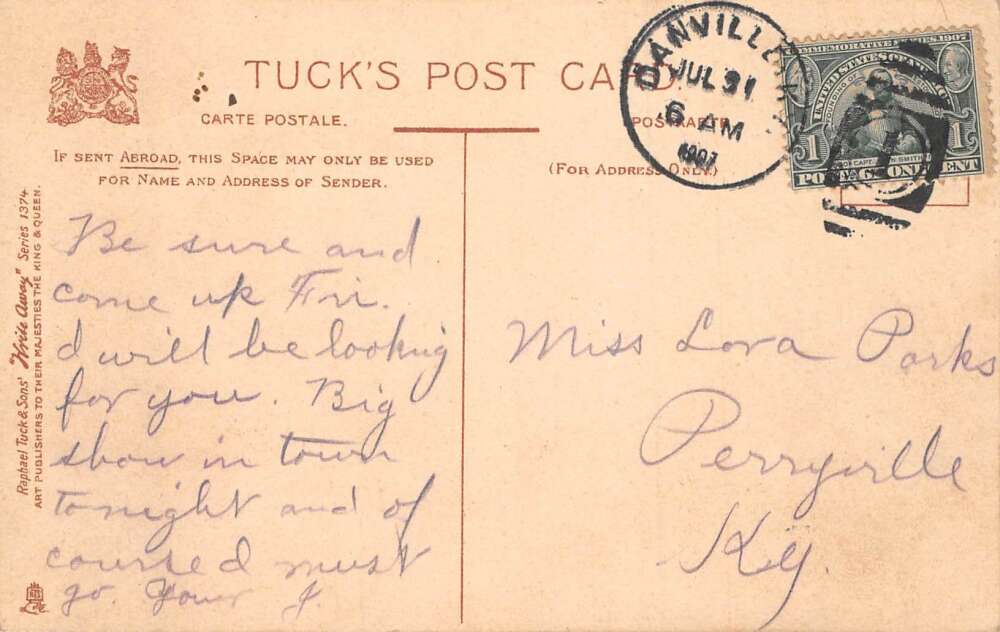 TUCK'S POST CARD.
CARTE POSTALE.
POSTKARTE.
IF SENT ABROAD, THIS SPACE MAY ONLY BE USED
FOR NAME AND ADDRESS OF SENDER.
(FOR ADDRESS ONLY.)
DANVILLE
JUL 31
6 AM
1907
COMMEMORATIVE SERIES, 1907
UNITED STATES OF AMERICA
FOUNDING OF
CAPT. JOHN SMITH
1 1
POSTAGE ONE CENT
Raphael Tuck & Sons' "Write Away" Series 1374
ART PUBLISHERS TO THEIR MAJESTIES THE KING & QUEEN.
Be sure and
come up Fri.
I will be looking
for you. Big
show in town
tonight and of
course I must
go. Your J.
Miss Lora Parks
Perryville
Ky.